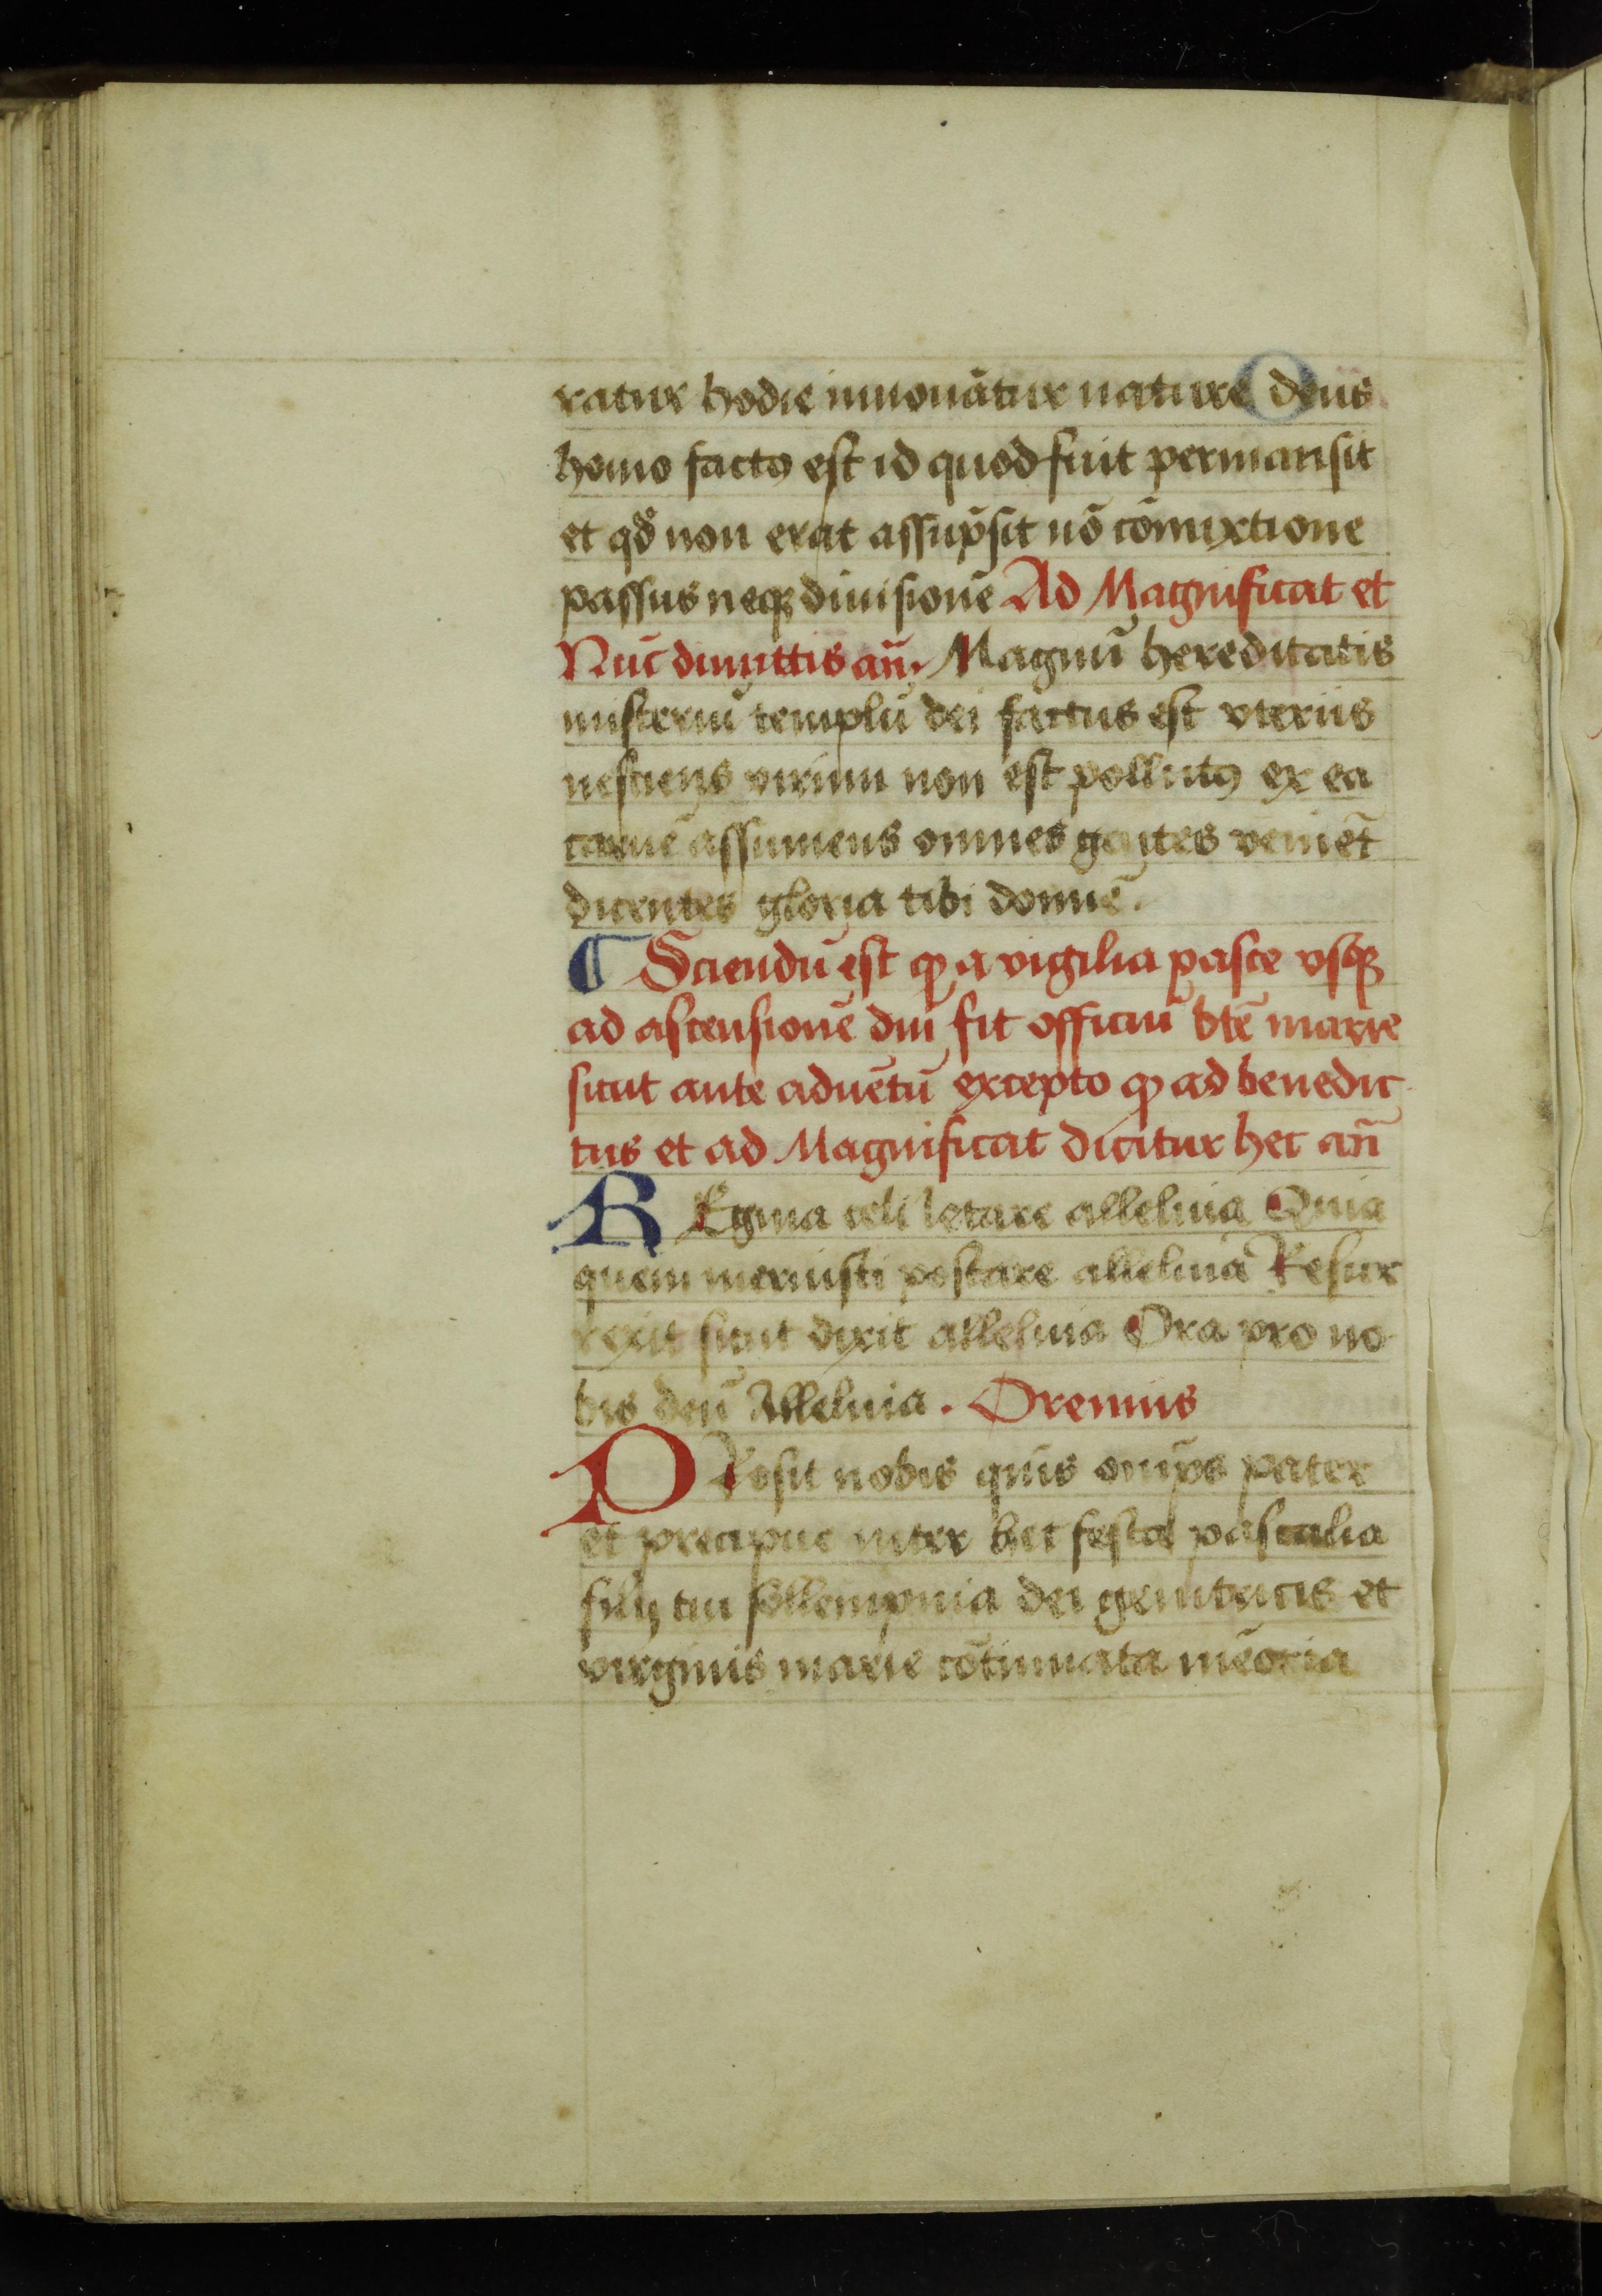 ratur hodie innouātur nature deus
homo factꝰ est id quod fuit permansit
et qđ non erat assūpsit nō cōmixtione
passus neqꝫ diuisionē Ad Magnificat et
Nūc dimittis añ. Magnū hereditatis
misteriū templū dei factus est vterus
nesciens virum non est pollutꝰ ex ea
carnē assumens omnes gentes veniēt
dicentes gloria tibi domine.
¶ Sciendū est ꝙ a vigilia pasce vsqꝫ
ad ascensionē dnī fit officiū btē marie
sicut ante aduētū excepto ꝙ ad benedic
tus et ad Magnificat dicitur hec añ
REgina celi letare alleluia Quia
quem meruisti portare alleluia Resur
rexit sicut dixit alleluia Ora pro no
bis deū Alleluia. Oremus
PRosit nobis quīs omīps pater
et precipue inter hec festa pascalia
filij tui sollempnia dei genitricis et
virginis marie cōtinuata mēoria